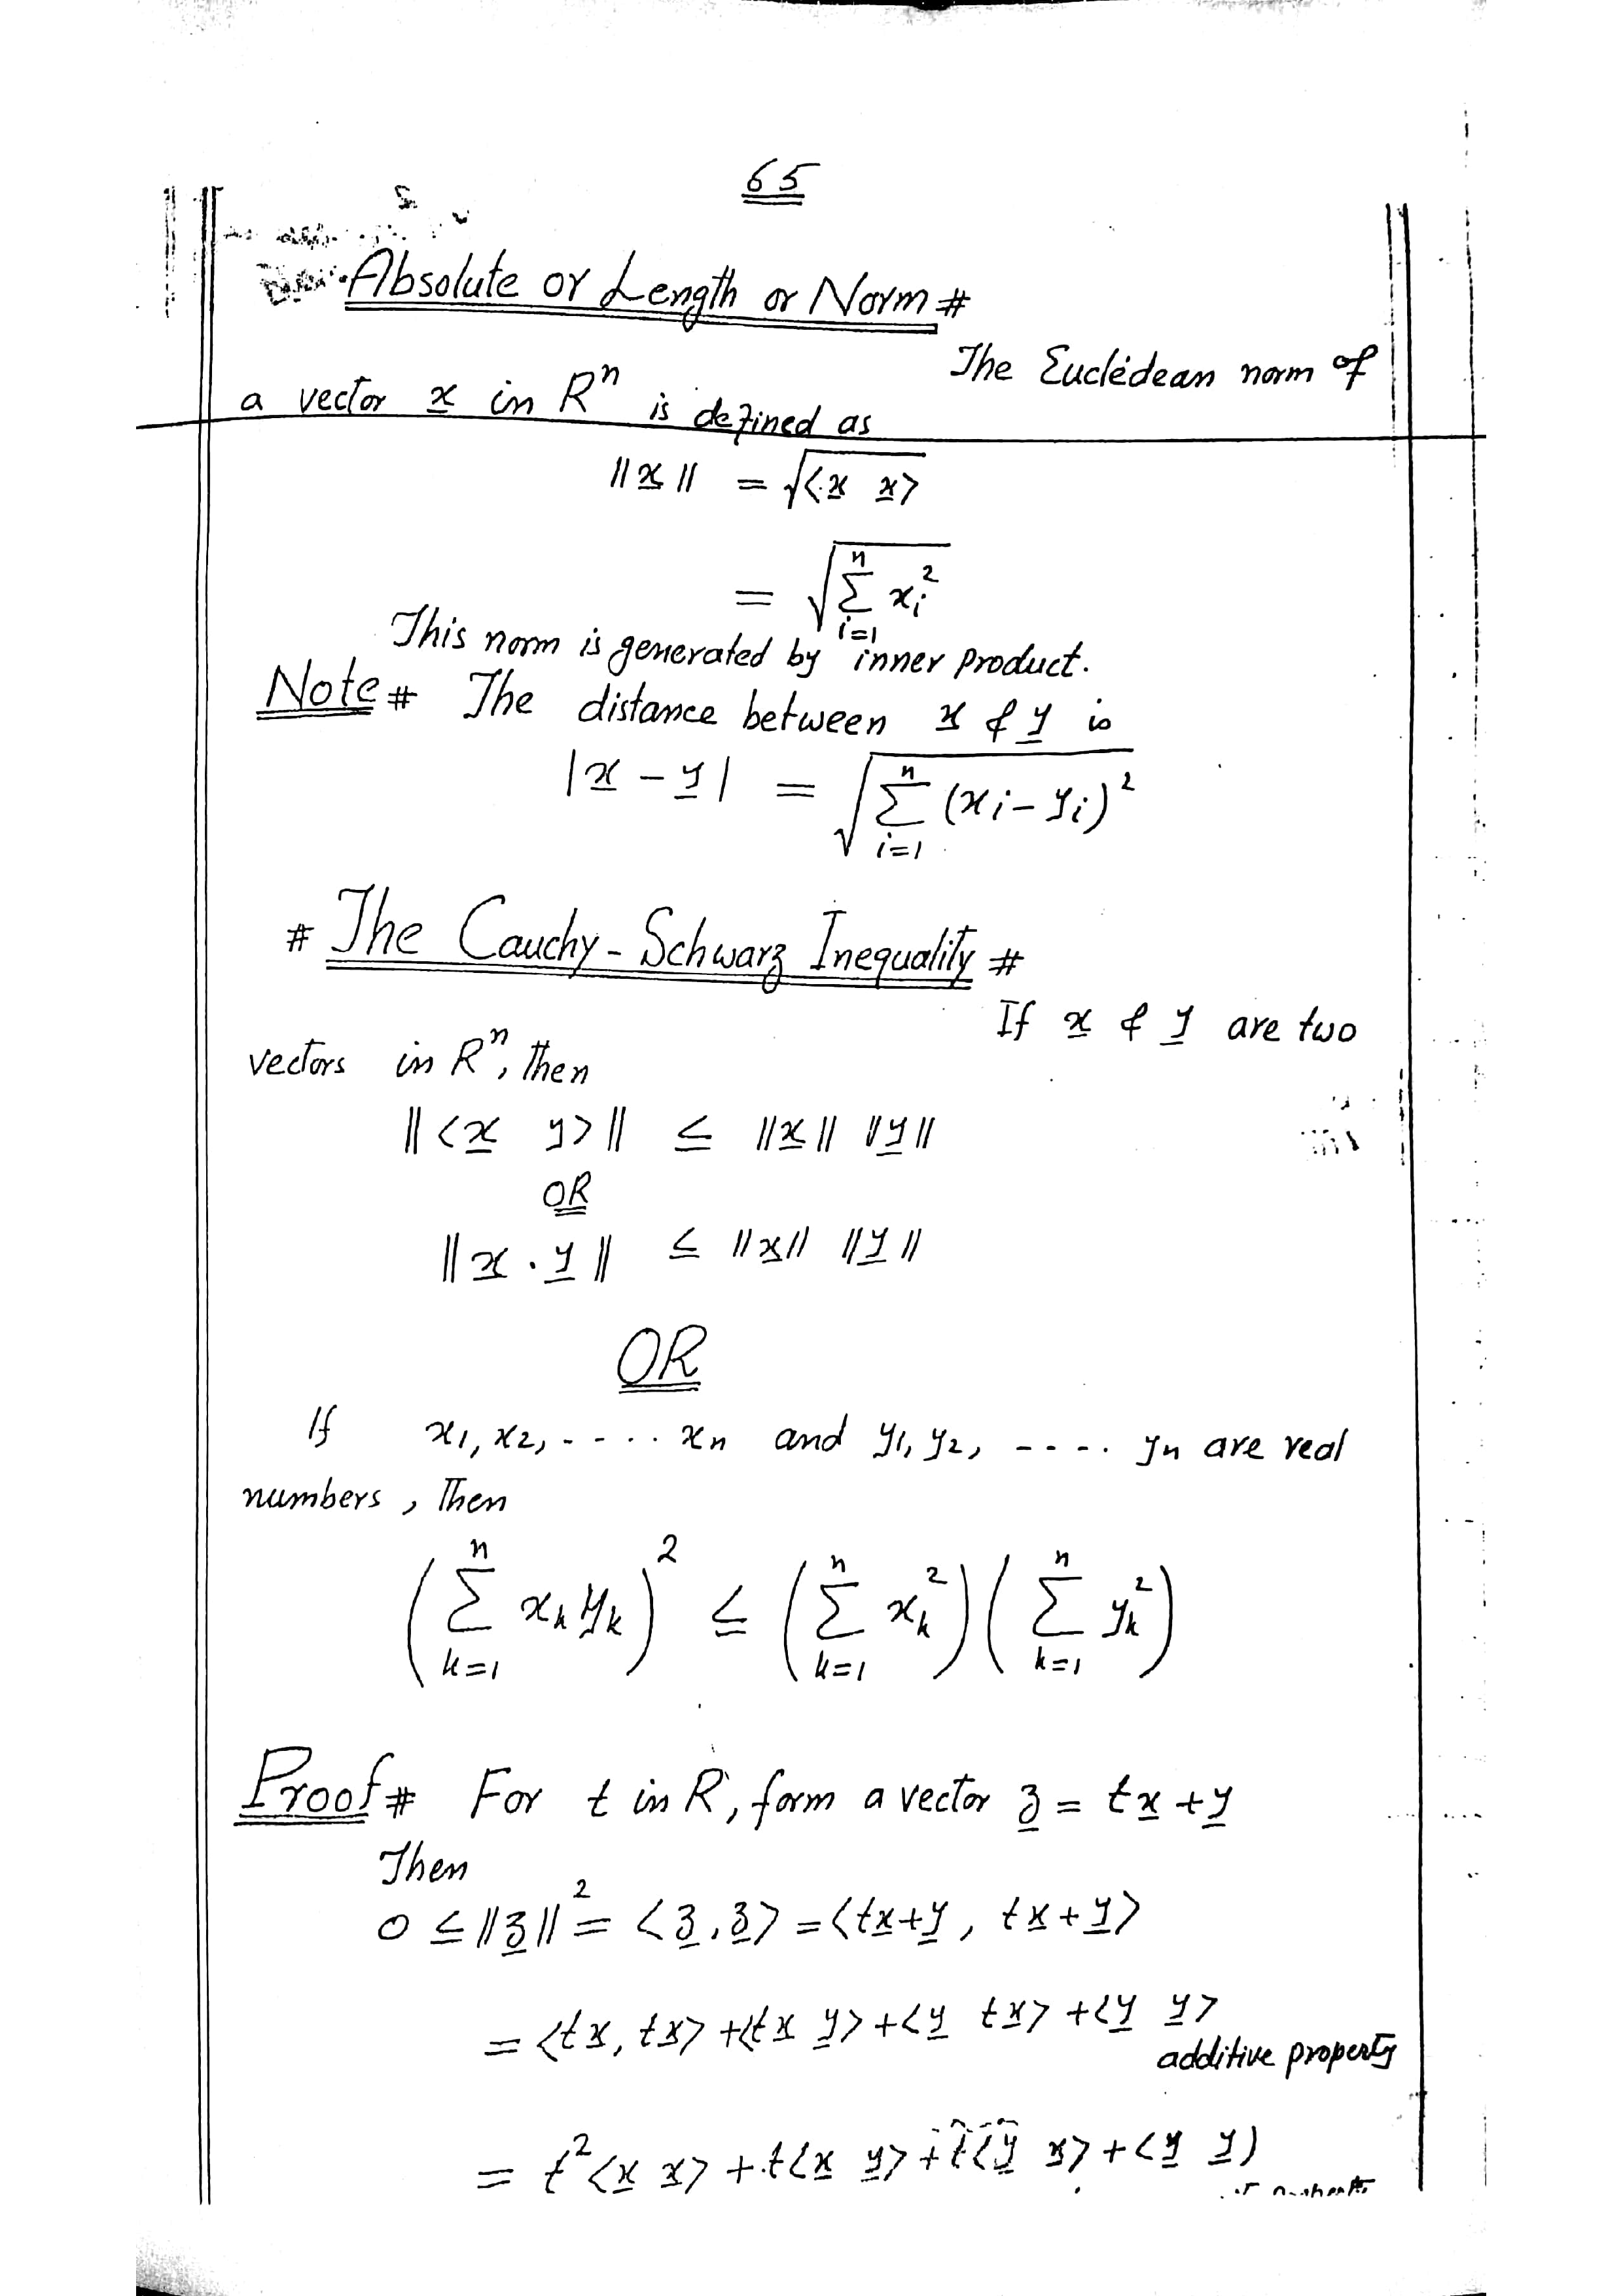 65
Absolute or Length or Norm #
The Euclédean norm of
a vector x̲ in Rⁿ is defined as
||x̲|| = √<x̲ x̲>
= √∑ⁿᵢ₌₁ xᵢ²
This norm is generated by inner product.
Note # The distance between x̲ & y̲ is
|x̲ - y̲| = √∑ⁿᵢ₌₁ (xᵢ - yᵢ)²
# The Cauchy-Schwarz Inequality #
If x̲ & y̲ are two
vectors in Rⁿ, then
||<x̲ y>|| ≤ ||x̲|| ||y̲||
OR
||x̲ . y̲|| ≤ ||x̲|| ||y̲||
OR
If x₁, x₂, - - - . . xₙ and y₁, y₂, - - - . yₙ are real
numbers, Then
(∑ⁿₖ₌₁ xₖ yₖ)² ≤ (∑ⁿₖ₌₁ xₖ²)(∑ⁿₖ₌₁ yₖ²)
Proof # For t in R, form a vector z̲ = tx̲ + y̲
Then
0 ≤ ||z̲||² = <z̲, z̲> = <tx̲+y̲, tx̲+y̲>
= <tx̲, tx̲> + <tx̲ y̲> + <y̲ tx̲> + <y̲ y̲>
additive property
= t²<x̲ x̲> + t<x̲ y̲> + t<y̲ x̲> + <y̲ y̲)